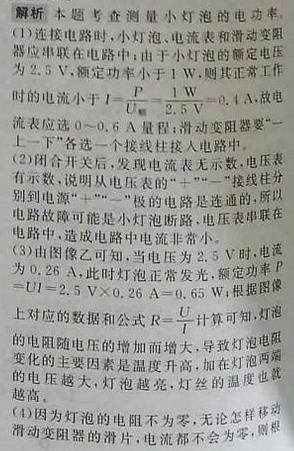 解析 本题考查测量小灯泡的电功率。
(1)连接电路时,小灯泡、电流表和滑动变阻
器应串联在电路中;由于小灯泡的额定电压
为 2.5 V,额定功率小于 1 W,则其正常工作
时的电流小于 I=P/U额=1 W/2.5 V=0.4 A,故电
流表应选 0～0.6 A 量程;滑动变阻器要“一
上一下”各选一个接线柱接入电路中。
(2)闭合开关后,发现电流表无示数,电压表
有示数,说明从电压表的“+”“-”接线柱分
别到电源“+”“-”极的电路是连通的,所以
电路故障可能是小灯泡断路,电压表串联在
电路中,造成电路中电流非常小。
(3)由图像乙可知,当电压为 2.5 V 时,电流
为 0.26 A,此时灯泡正常发光,额定功率 P
=UI=2.5 V×0.26 A=0.65 W;根据图像
上对应的数据和公式 R=U/I计算可知,灯泡
的电阻随电压的增加而增大,导致灯泡电阻
变化的主要因素是温度升高,加在灯泡两端
的电压越大,灯泡越亮,灯丝的温度也就
越高。
(4)因为灯泡的电阻不为零,无论怎样移动
滑动变阻器的滑片,电流都不会为零,则根